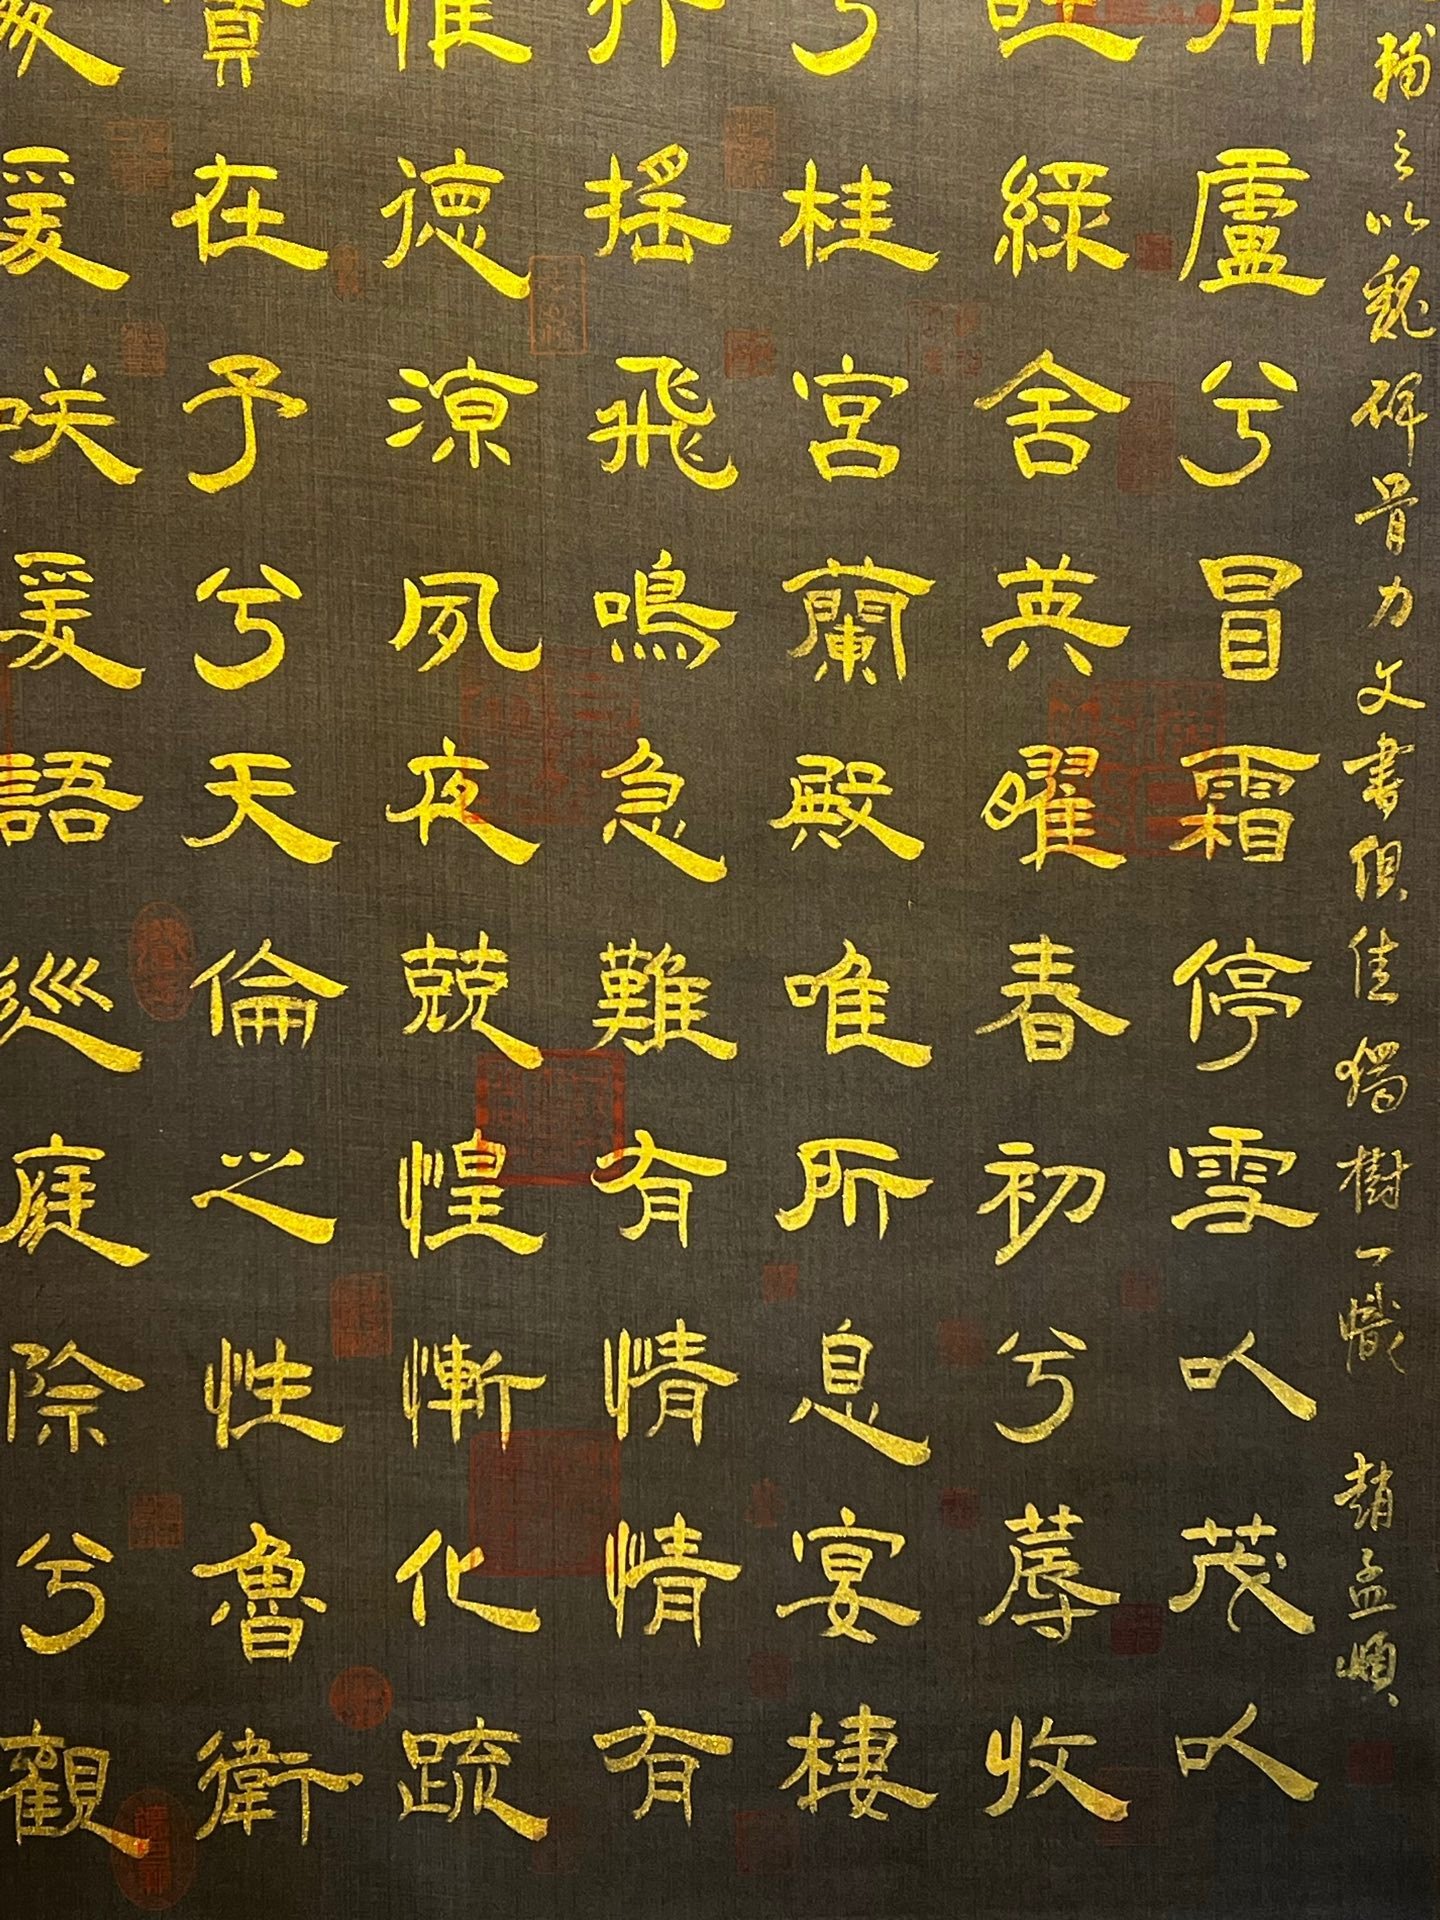 輔之以魏碑骨力文書俱佳獨樹一幟 趙孟頫
周盧兮冒霜停雪以茂以
吐綠舍英曜春初兮蓐收
兮桂宮蘭殿唯所息宴棲
行搖飛鳴急難有情情有
惟德涼夙夜兢惶慚化疏
實在予兮天倫之性魯衛
爰咲爰語巡庭除兮觀